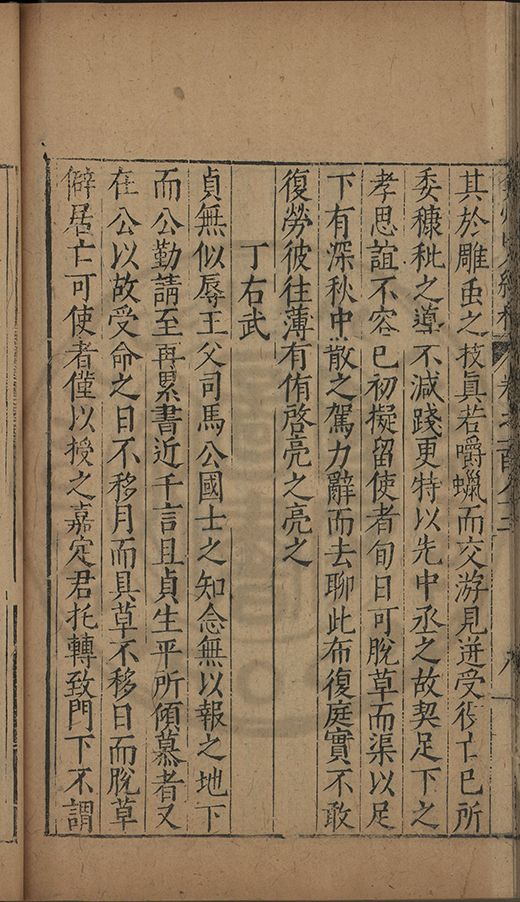 其於雕虫之技眞若嚼蠟而交游見迸受役亡已所
委糠秕之導不減踐更特以先中丞之故契足下之
孝思誼不容已初擬留使者旬日可脫草而渠以足
下有深秋中散之駕力辭而去聊此布復庭實不敢
復勞彼往薄有侑啓亮之亮之
丁右武
貞無似辱王父司馬公國士之知念無以報之地下
而公勤請至再累書近千言且貞生平所傾慕者又
在公以故受命之日不移月而具草不移日而脫草
僻居亡可使者僅以授之嘉定君托轉致門下不謂